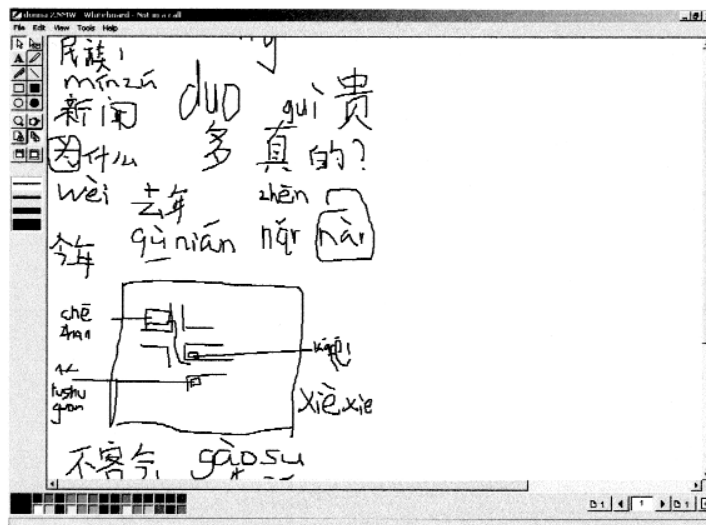 donna 2.NMW - Whiteboard - Not in a call
File Edit View Tools Help
民族
mínzú
duo guì 贵
新闻
多 真 的?
因什么
wèi 去年 zhēn
今年 qùnián nǎr nàr
chē
tushu
guan
xièxie
不客今 gàosu
1